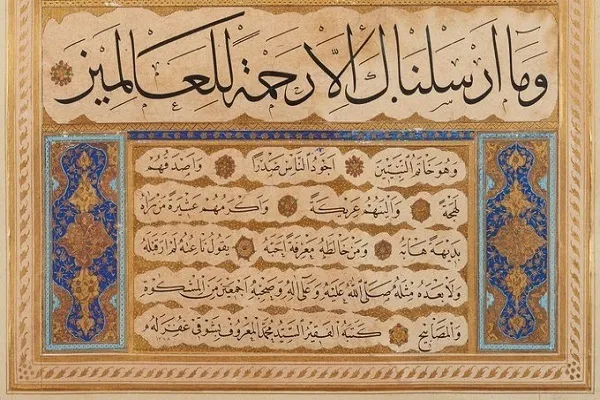 وما أرسلناك إلا رحمة للعالمين
وهو خاتم النبيين أجود الناس صدرا وأصدقهم
لهجة وألينهم عريكة وأكرمهم عشيرة من رآه
بديهة هابه ومن خالطه معرفة أحبه يقول ناعته لم أر قبله
ولا بعده مثله صلى الله عليه وعلى آله وصحبه أجمعين من المشكوة
والمصابيح كتبه الفقير السيد محمد المعروف بشوقي غفر له